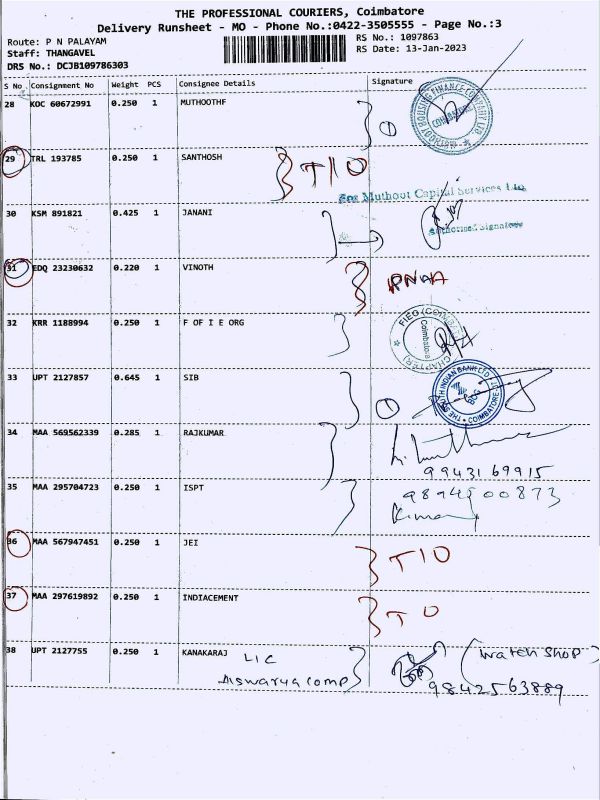 THE PROFESSIONAL COURIERS, Coimbatore
Delivery Runsheet - MO - Phone No.:0422-3505555 - Page No.:3
Route: P N PALAYAM
RS No.: 1097863
Staff: THANGAVEL
RS Date: 13-Jan-2023
DRS No.: DCJB109786303
S No. Consignment No Weight PCS Consignee Details Signature
28 KOC 60672991 0.250 1 MUTHOOTHF
29 TRL 193785 0.250 1 SANTHOSH T I O
For Muthoot Capital Services Ltd.
30 KSM 891821 0.425 1 JANANI
Authorised Signatory
31 EDQ 23230632 0.220 1 VINOTH
32 KRR 1188994 0.250 1 F OF I E ORG
FIEO (COIMBATORE CHAPTER) Coimbatore
33 UPT 2127857 0.645 1 SIB
THE SOUTH INDIAN BANK LTD. COIMBATORE
34 MAA 569562339 0.285 1 RAJKUMAR
9943169915
35 MAA 295704723 0.250 1 ISPT
Kumar
36 MAA 567947451 0.250 1 JEI T I O
37 MAA 297619892 0.250 1 INDIACEMENT T O
38 UPT 2127755 0.250 1 KANAKARAJ LIC (Watch Shop)
Aiswarya Comp 9842563889